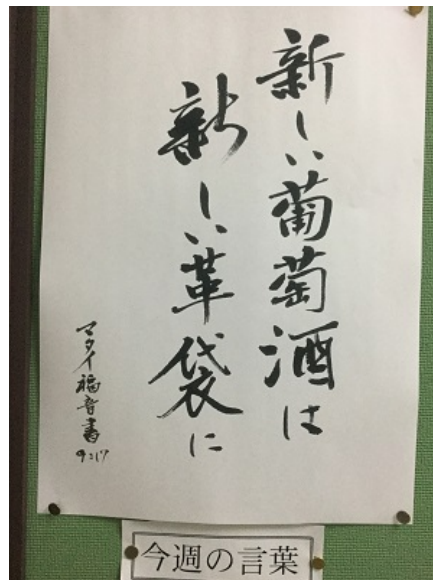 新しい葡萄酒は
新しい革袋に
マタイ福音書
9:17
今週の言葉